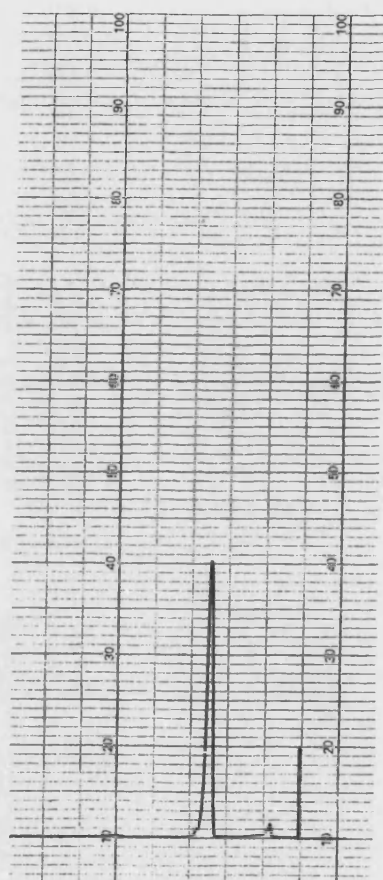 100 100
90 90
80 80
70 70
60 60
50 50
40 40
30 30
20 20
10 10